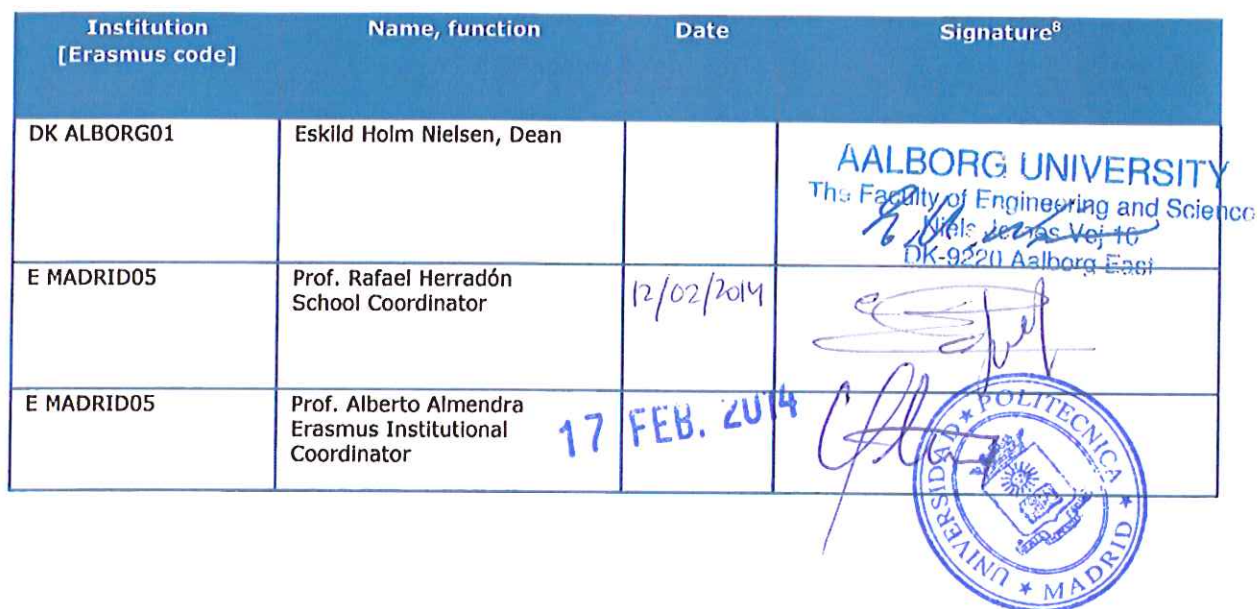 Institution
[Erasmus code]
Name, function
Date
Signature⁸
DK ALBORG01
Eskild Holm Nielsen, Dean
AALBORG UNIVERSITY
The Faculty of Engineering and Science
Niels Jernes Vej 10
DK-9220 Aalborg East
E MADRID05
Prof. Rafael Herradón
School Coordinator
12/02/2014
E MADRID05
Prof. Alberto Almendra
Erasmus Institutional
Coordinator
17 FEB. 2014
UNIVERSIDAD ★ POLITECNICA ★ MADRID ★